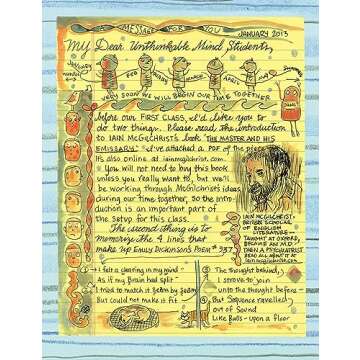 A MESSAGE FOR YOU
JANUARY 2013
My Dear Unthinkable Mind Students,
JANUARY
FEB
MARCH
APRIL
VERY SOON WE WILL BEGIN OUR TIME TOGETHER
before our FIRST CLASS, I'd like you to
do two things. Please read the introduction
to IAIN McGILCHRIST'S book, "THE MASTER AND HIS
EMISSARY." I've attached a PDF of the piece.
It's also online at iainmcgilchrist.com.
You will not need to buy this book
unless you really want to, but we'll
be working through McGilchrist's ideas
during our time together, so the intro-
duction is an important part of
the setup for this class.
The second thing is to
memorize the 8 lines that
make up EMILY DICKINSON'S Poem # 937
IAIN McGILCHRIST:
BRITISH SCHOLAR
OF ENGLISH
LITERATURE
TAUGHT AT OXFORD,
BECAME AN M.D.
THEN A PSYCHIATRIST
READ ALL ABOUT IT AT
iainmcgilchrist.com
I felt a cleaving in my mind
As if my Brain had split
I tried to match it Seam by Seam
But could not make it fit
The thought behind,
I strove to join
unto the thought before
But Sequence ravelled
out of Sound
Like Balls - upon a floor